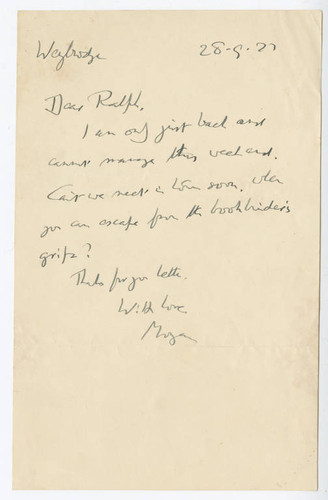 Weybridge 28-9-27
Dear Ralph,
I am only just back and
cannot manage this weekend.
Can't we meet in town soon, when
you can escape from the bookbinder's
grip?
Thanks for your letter.
With love.
Morgan